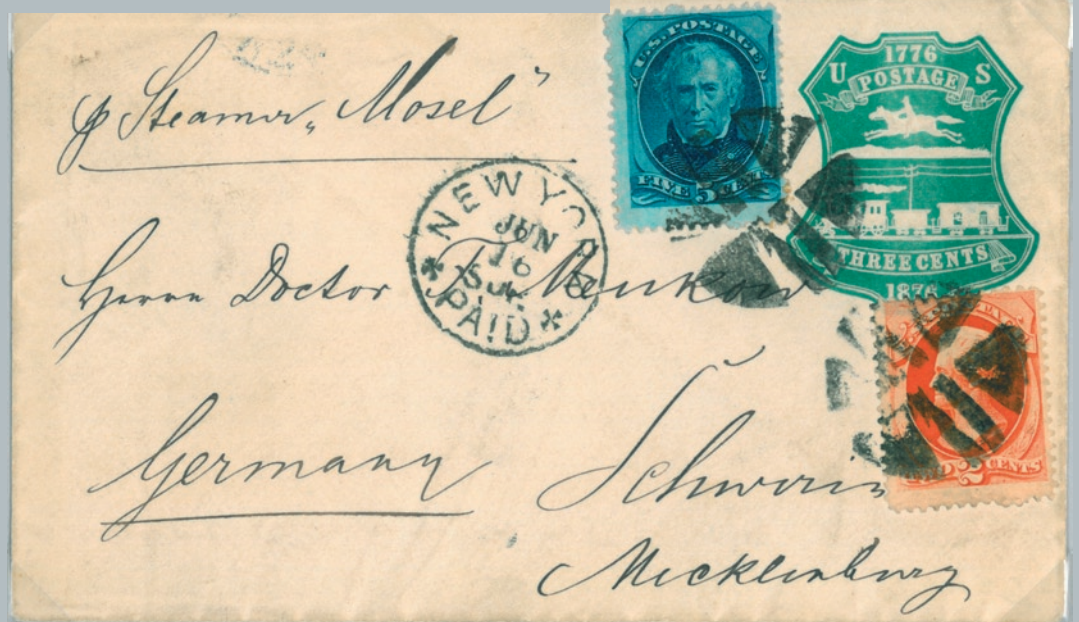 p Steamer „Mosel"
U.S. POSTAGE
FIVE 5 CENTS
1776
U S
POSTAGE
THREE CENTS
187
NEW YORK
JUN
16
PAID
Herrn Doctor
Germany
Schwerin
Mecklenburg
2 CENTS